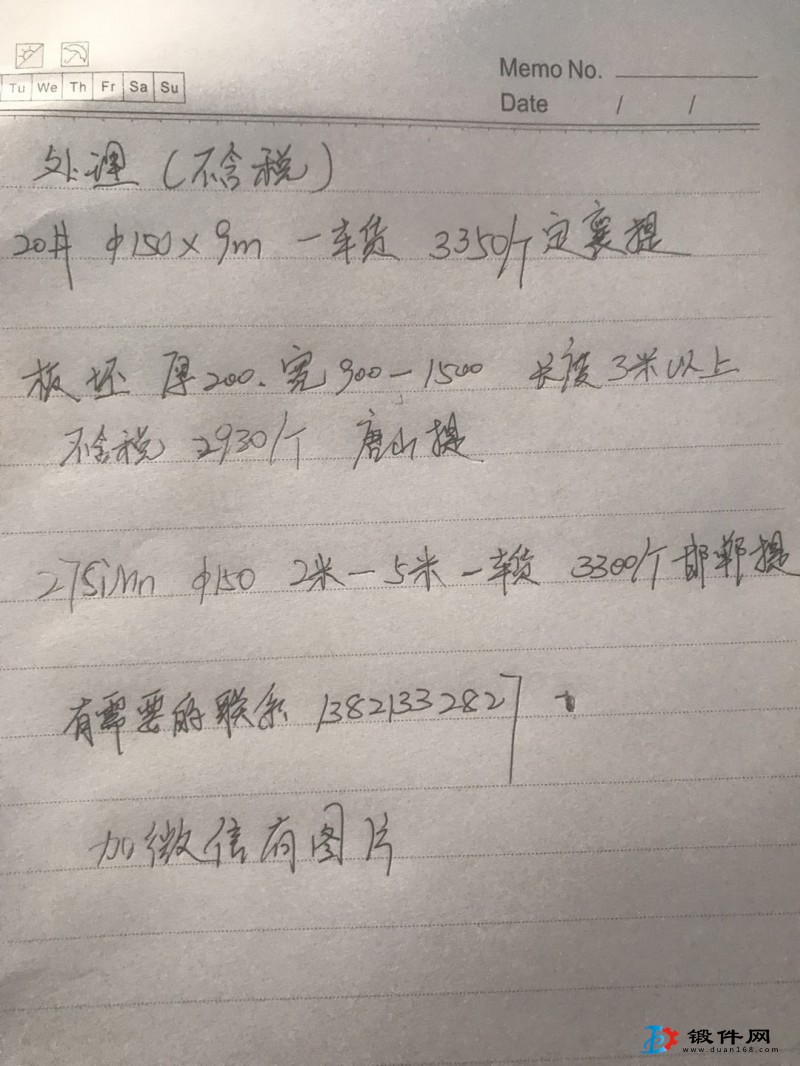 Memo No.
Tu We Th Fr Sa Su
Date / /
处理（不含税）
20# φ150×9m 一车货 3350/个 定襄提
板坯 厚200、宽900-1500 长度3米以上
不含税 2930/个 唐山提
27SiMn φ150 2米-5米 一车货 3300/个 邯郸提
有需要的联系 13821332827
加微信有图片
锻件网
www.duan168.com